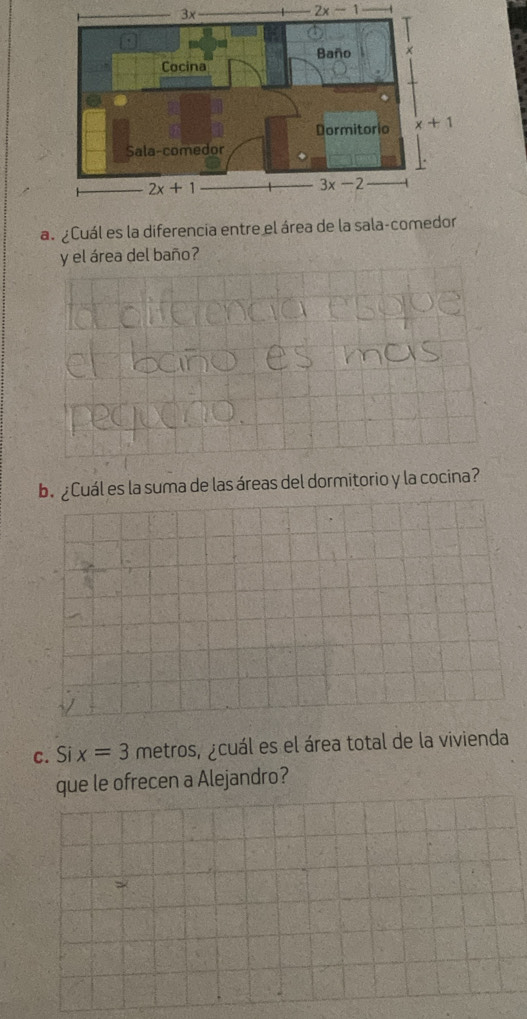 3x 2x - 1
Cocina Baño x
Sala-comedor Dormitorio x + 1
2x + 1 3x - 2
a. ¿Cuál es la diferencia entre el área de la sala-comedor
y el área del baño?
la diferencia es que
el baño es mas
pequeño.
b. ¿Cuál es la suma de las áreas del dormitorio y la cocina?
c. Si x = 3 metros, ¿cuál es el área total de la vivienda
que le ofrecen a Alejandro?